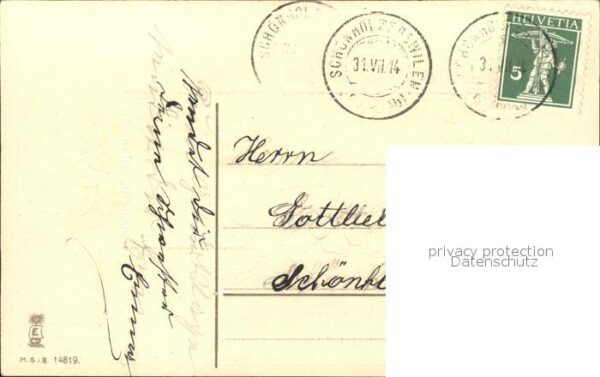 SCHÖNHOLZERSWILEN
31.VII.14
HELVETIA
5
Herrn
Gottlie
Schönh
privacy protection
Datenschutz
Deine Schwester
Emma
E
M.S.i.B. 14819.